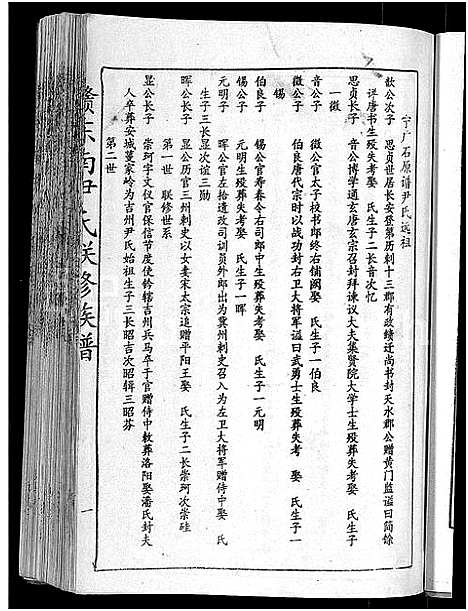 宁广石原谱尹氏远祖
歆公次子　思贞世居长安登第历刺十三郡有政绩迁尚书封天水郡公赠黄门监谥曰简馀
详唐书生殁失考娶　氏生子二长音次忆
思贞长子　音公博学通玄唐玄宗召封拜谏议大夫集贤院大学士生殁葬失考娶　氏生子
一徽
音公子　徽公官太子校书郎终右补阙娶　氏生子一伯良
徽公子　伯良唐代宗时以战功封右卫大将军谥曰武勇士生殁葬失考　娶　氏生子一
锡
伯良子　锡公官寿春令右司郎中生殁葬失考娶　氏生子一元明
锡公子　元明生殁葬失考娶　氏生子一晖
元明子　晖公官左拾遗改司训员外郎出为冀州刺史召入为左卫大将军赠侍中娶　氏
生子三长显次谊三勋
晖公长子　显公历官三州刺史以女妻宋太宗追赠平阳王娶　氏生子二长崇珂次崇硅
第一世　联修世系
显公长子　崇珂字文仪官保信节度使钤辖吉州兵马卒于官赠侍中敕葬洛阳娶潘氏封夫
人卒葬安城董家岭为吉州尹氏始祖生子三长昭吉次昭辑三昭芬
第二世
赣东南尹氏联修族谱
一